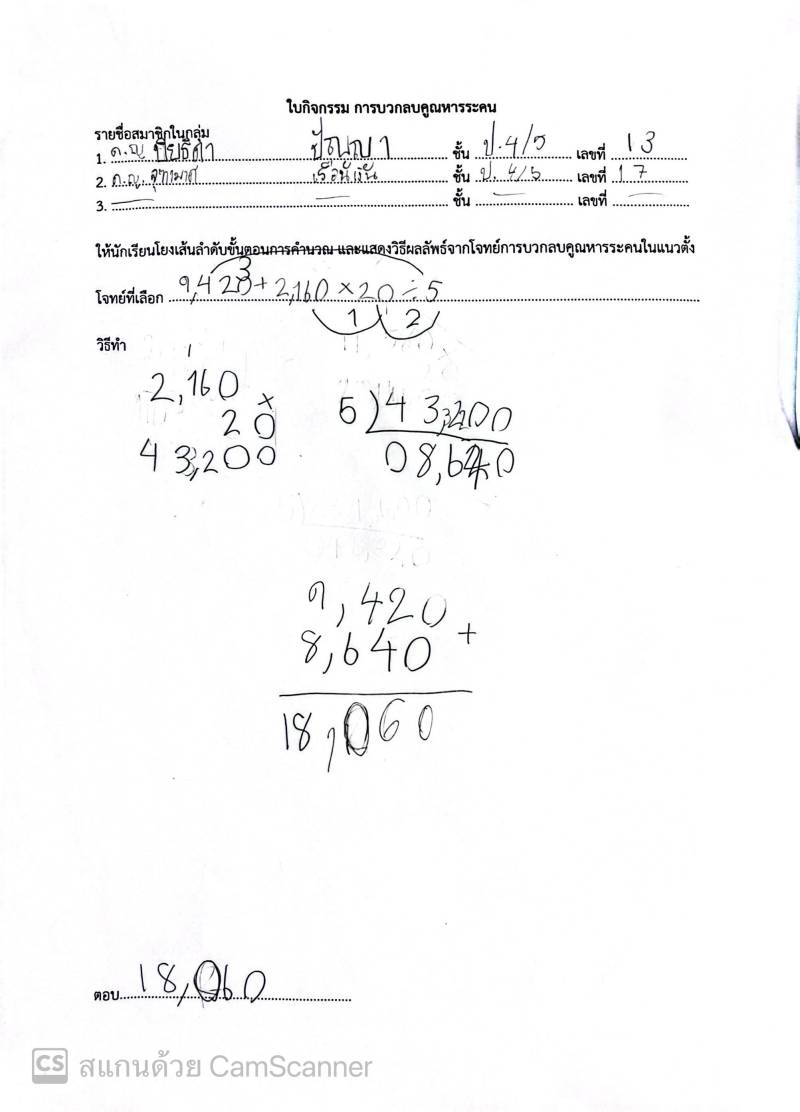 ใบกิจกรรม การบวกลบคูณหารระคน
รายชื่อสมาชิกในกลุ่ม
1. ด.ญ ปิยธิดา ปัญญา ชั้น ป.4/5 เลขที่ 13
2. ด.ญ. จุฑามาศ เรือนเงิน ชั้น ป. 4/5 เลขที่ 17
3. ชั้น เลขที่
ให้นักเรียนโยงเส้นลำดับขั้นตอนการคำนวณ และแสดงวิธีผลลัพธ์จากโจทย์การบวกลบคูณหารระคนในแนวตั้ง
3
โจทย์ที่เลือก 9,420+2,160×20÷5
1 2
วิธีทำ
1
2,160 ×
20
43,200
5)43,200
08,640
9,420
8,640 +
18,060
ตอบ 18,060
CS สแกนด้วย CamScanner